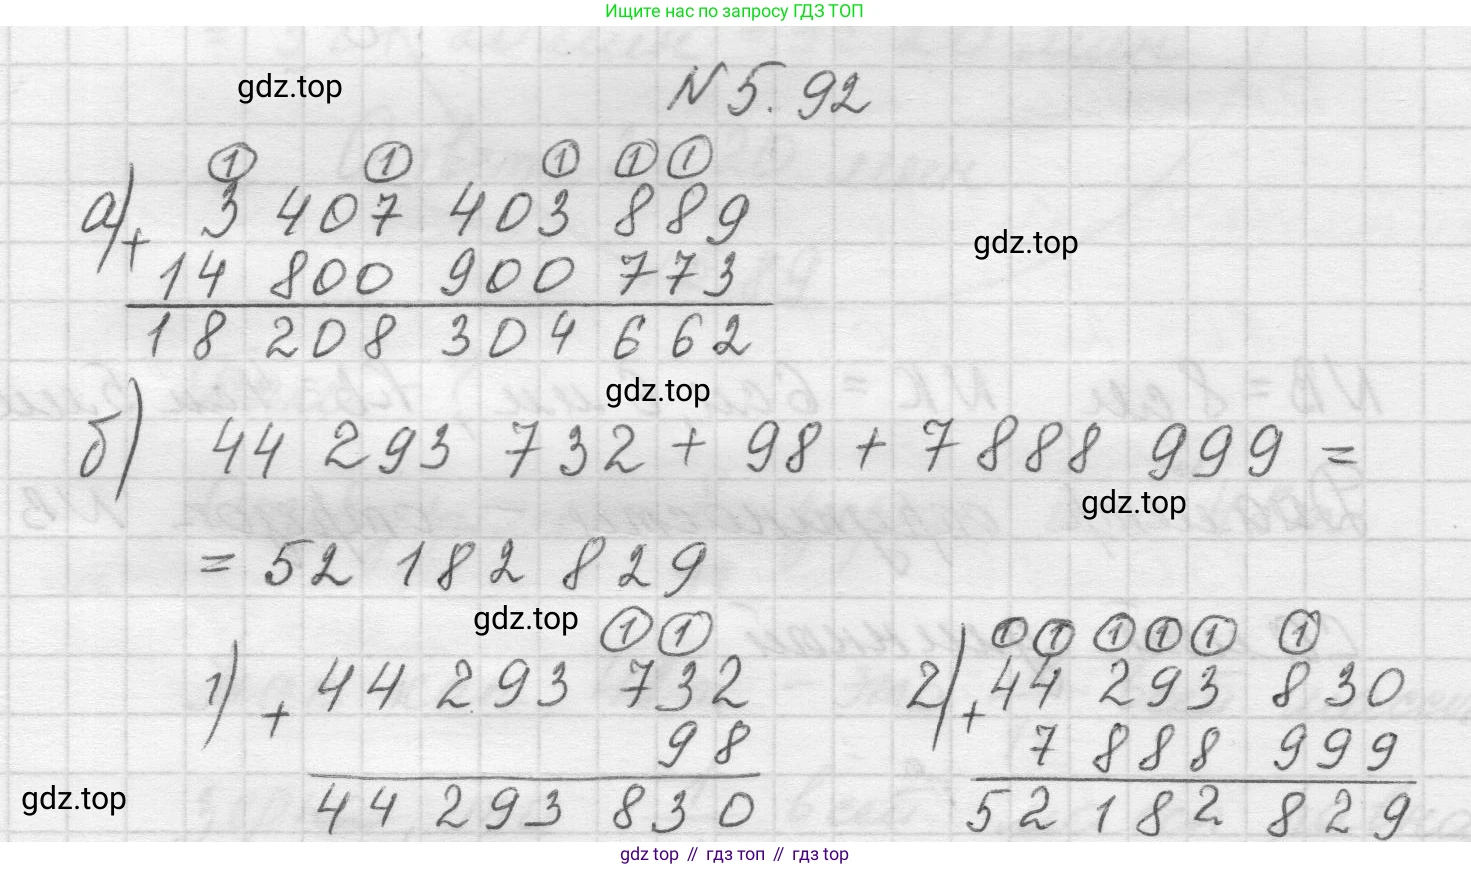 Ищите нас по запросу ГДЗ ТОП
gdz.top
N 5. 92
1 1 1 1 1
а) + 3 407 403 889
14 800 900 773
18 208 304 662
gdz.top
gdz.top
б) 44 293 732 + 98 + 7 888 999 =
gdz.top
= 52 182 829
gdz.top
1 1
1) + 44 293 732
98
44 293 830
1 1 1 1 1 1
2) + 44 293 830
7 888 999
52 182 829
gdz.top
gdz top // гдз топ // гдз top